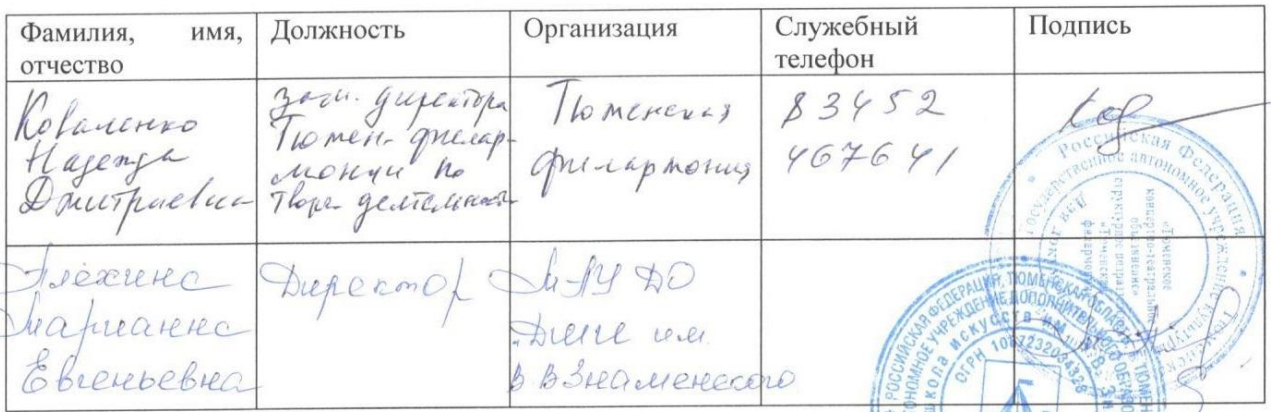 Фамилия, имя, отчество
Должность
Организация
Служебный телефон
Подпись
Коваленко
Надежда
Дмитриевна
зам. директора
Тюмен. филар-
монии по
твор. деятельност
Тюменская
филармония
83452
467641
Алёхина
Марианна
Евгеньевна
Директор
МАУ ДО
ДШИ им.
В В Знаменского
Российская Федерация
Государственное автономное учреждение культуры
РОССИЙСКАЯ ФЕДЕРАЦИЯ, ТЮМЕНСКАЯ ОБЛАСТЬ
АВТОНОМНОЕ УЧРЕЖДЕНИЕ ДОПОЛНИТЕЛЬНОГО ОБРАЗО
школа искусств им. В.В. Зн
ОГРН 1067232034328